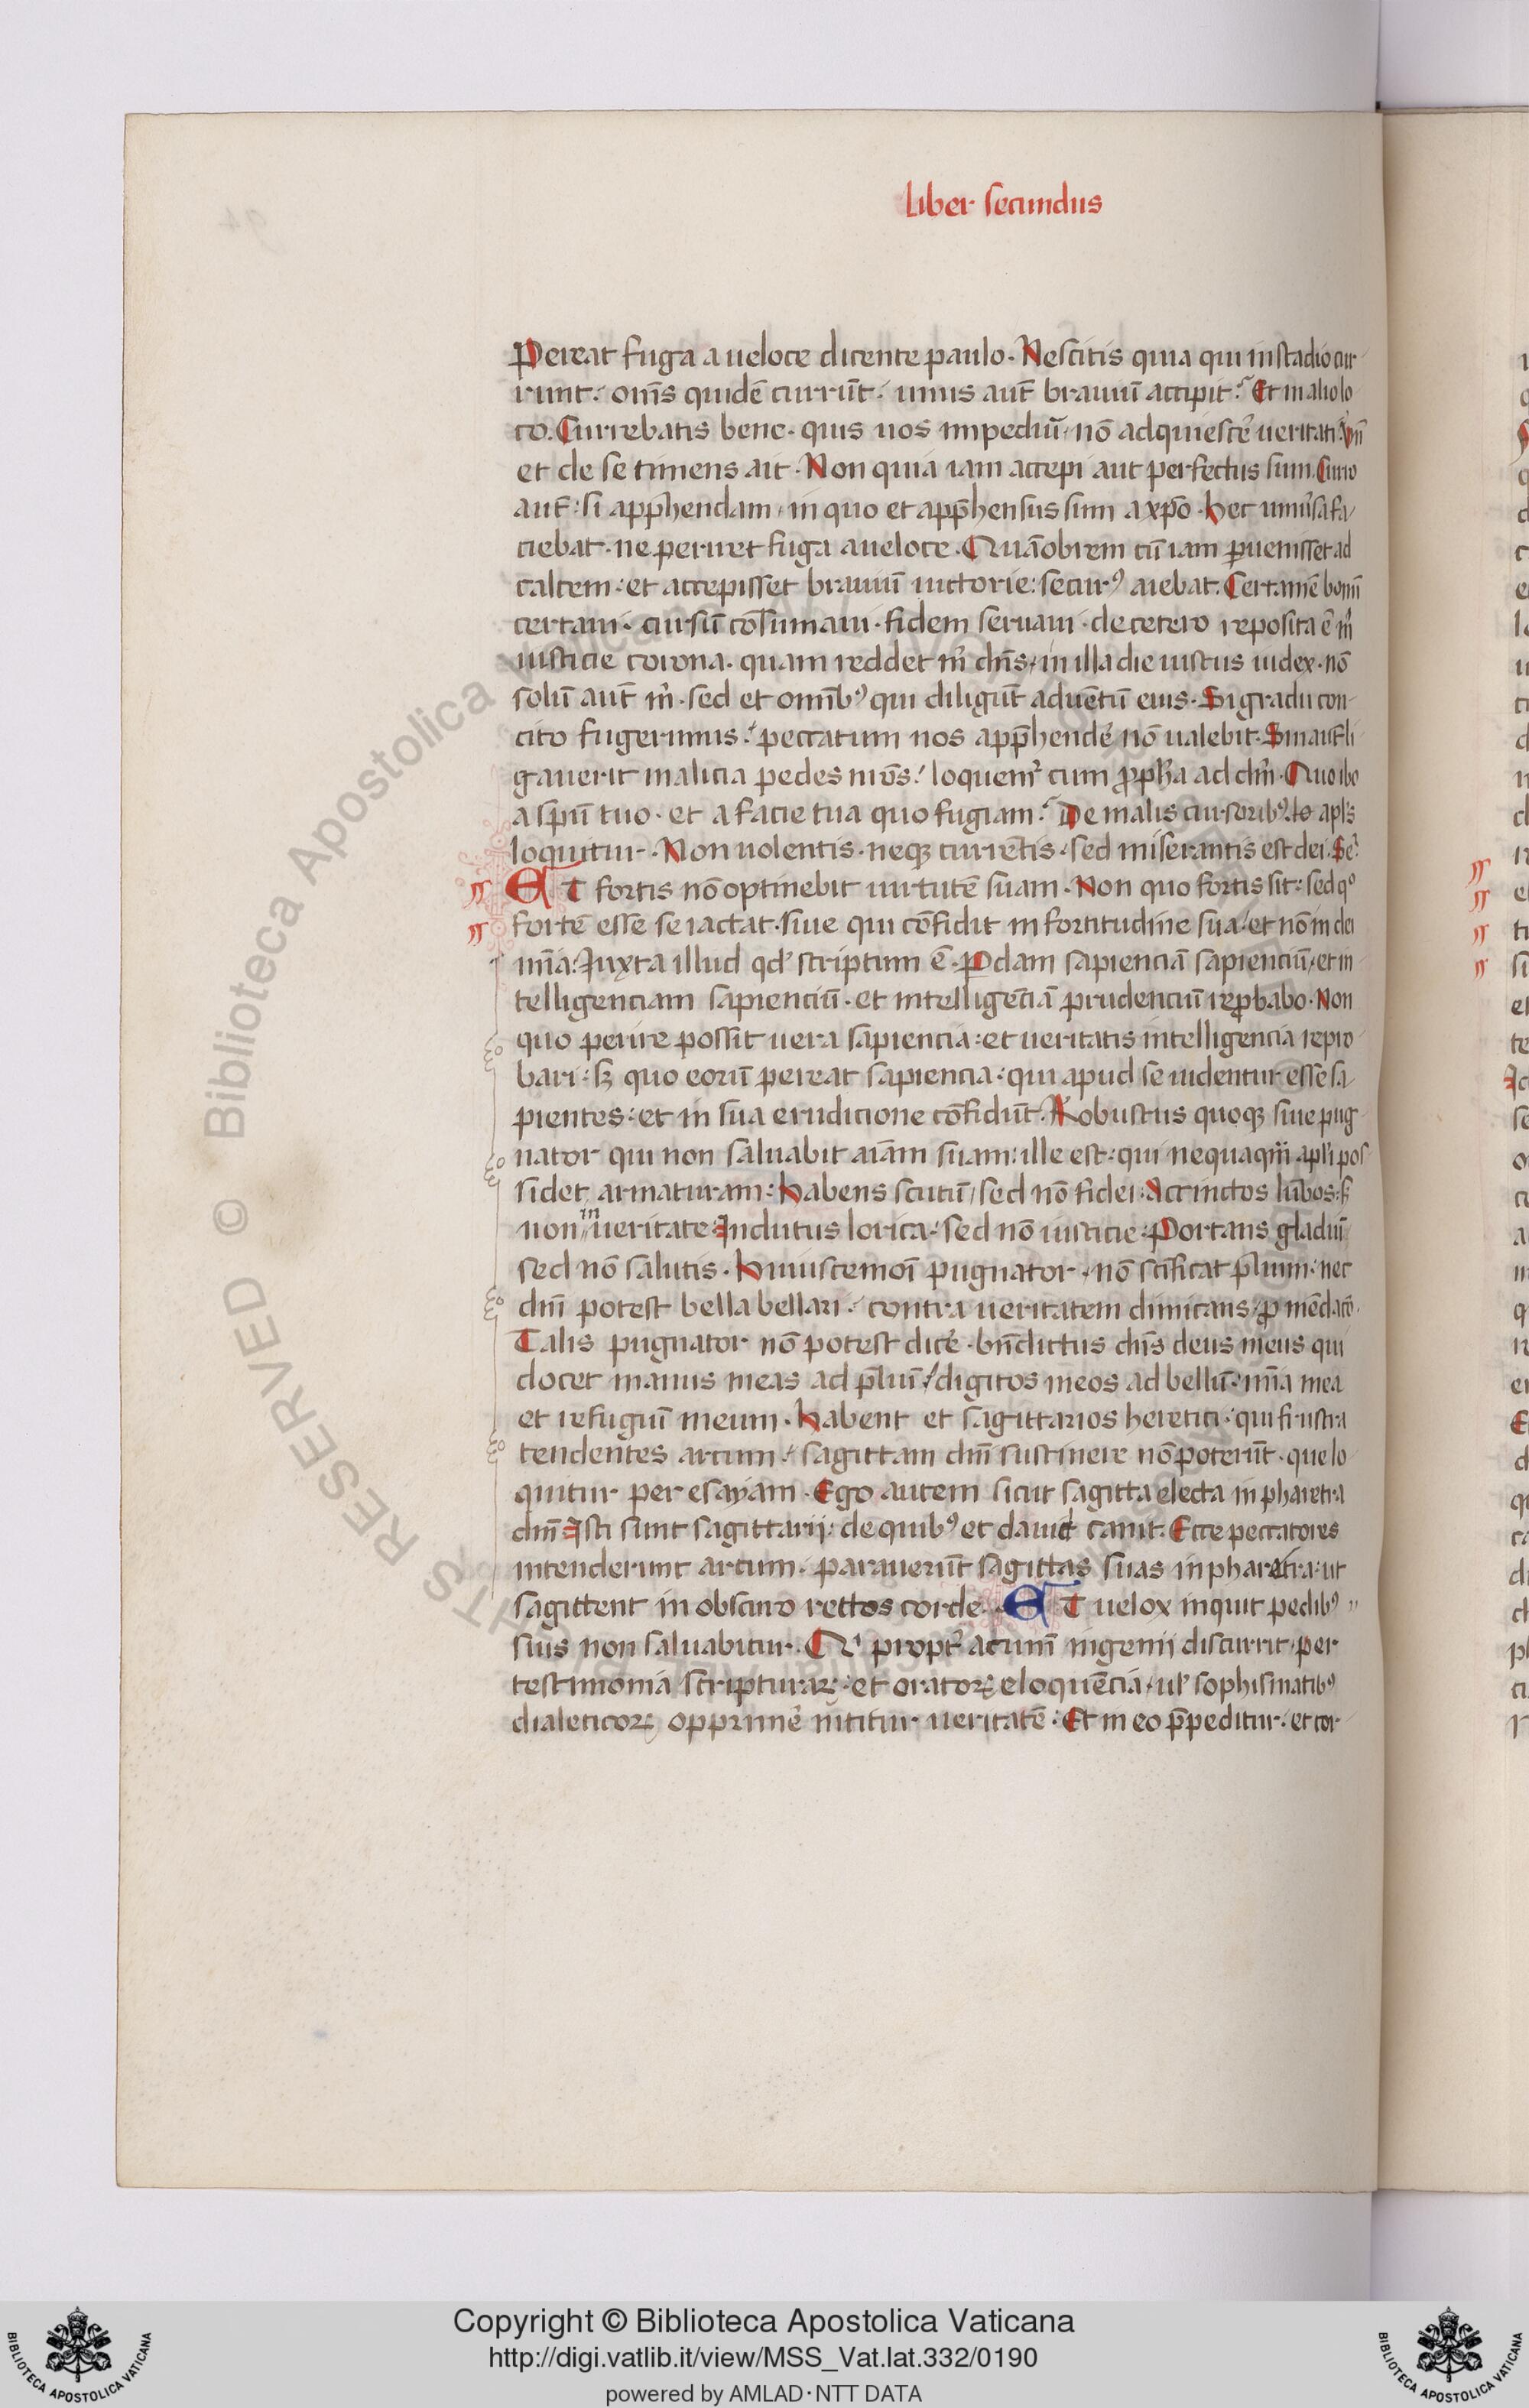 liber secundus
Pereat fuga a ueloce dicente paulo. Nescitis quia qui in stadio cur-
runt: om̄s quidē currūt: unus aut̄ brauiū accipit? Et in alio lo
co. Currebatis bene. quis uos impediuͥ nō adquiescẽ ueritati? Vn̄
et de se timens ait. Non quia iam accepi aut perfectus sum. Curro
aut̄: si app̄hendam, in quo et app̄hensus sum a xp̄o. hec uniũsa fa-
ciebat. ne periret fuga a ueloce. Quāobrem cū iam ꝑuenisset ad
calcem: et accepisset brauiū uictorie: securꝰ aiebat. Certamē bonū
certaui. cursū cōsumaui. fidem seruaui. de cetero reposita ē m̄
iusticie corona. quam reddet m̄ dn̄s, in illa die iustus iudex. nō
solū aut̄ m̄. sed et omībꝰ qui diligūt aduētū eius. Si gradu con-
cito fugerimus: peccatum nos app̄hendẽ nō ualebit. Sin aut̄ li
gauerit malicia pedes nr̄os: loquemͬ cum ꝓph̄a ad dm̄. Quo ibo
a sp̄u tuo. et a facie tua quo fugiam? De malis cursoribꝰ. apl̄s
loquitur. Non uolentis. neqꝫ currētis. sed miserantis est dei. Se
ET fortis nō optinebit uirtutē suam. Non quo fortis sit: sed qͦ
fortē esse se iactat. siue qui cōfidit in fortitudine sua: et nō in dei
mīa. Juxta illud qd̓ scriptum ē. Pdam sapienciā sapienciū, et in
telligenciam sapienciū. et intelligēciā prudenciū reꝓbabo. Non
quo perire possit uera sapiencia: et ueritatis intelligencia repro
bari: sꝫ quo eorū pereat sapiencia. qui apud se uidentur esse sa-
pientes: et in sua erudicione cōfidūt. Robustus quoqꝫ siue pug
nator qui non saluabit aīam suam: ille est: qui nequaqm̄ apl̄i pos
sidet armaturam: habens scutū, sed nō fidei. Accinctos lūbos: s̄
non in ueritate. Indutus lorica: sed nō iusticie. Portans gladiū
sed nō salutis. Huiuscemōi pugnator, nō scīficat p̄lium. nec
dn̄i potest bella bellari: contra ueritatem dimicans, ꝓ mēdacō.
Talis pugnator nō potest dicẽ. bn̄dictus dn̄s deus meus qui
docet manus meas ad p̄liū: digitos meos ad bellū. mīa mea
et refugiū meum. habent et sagittarios heretici. qui frustra
tendentes arcum: sagittam dn̄i sustinere nō poterūt. que lo
quitur per esayam. Ego autem sicut sagitta electa in pharetra
dn̄i. Isti sunt sagittarij: de quibꝰ et dauid canit. Ecce peccatores
intenderunt arcum. parauerūt sagittas suas in pharetra: ut
sagittent in obscuro rectos corde. ET uelox inquit pedibꝰ
suis non saluabitur. Qͥ proptͬ acumī ingenij discurrit, per
testimonia scripturaꝝ: et oratoꝝ eloquēcia, ul̓ sophismatibꝰ
dialeticoꝝ opprimẽ nititur ueritatē: Et in eo p̄peditur. et cor-
Copyright © Biblioteca Apostolica Vaticana
http://digi.vatlib.it/view/MSS_Vat.lat.332/0190
powered by AMLAD·NTT DATA